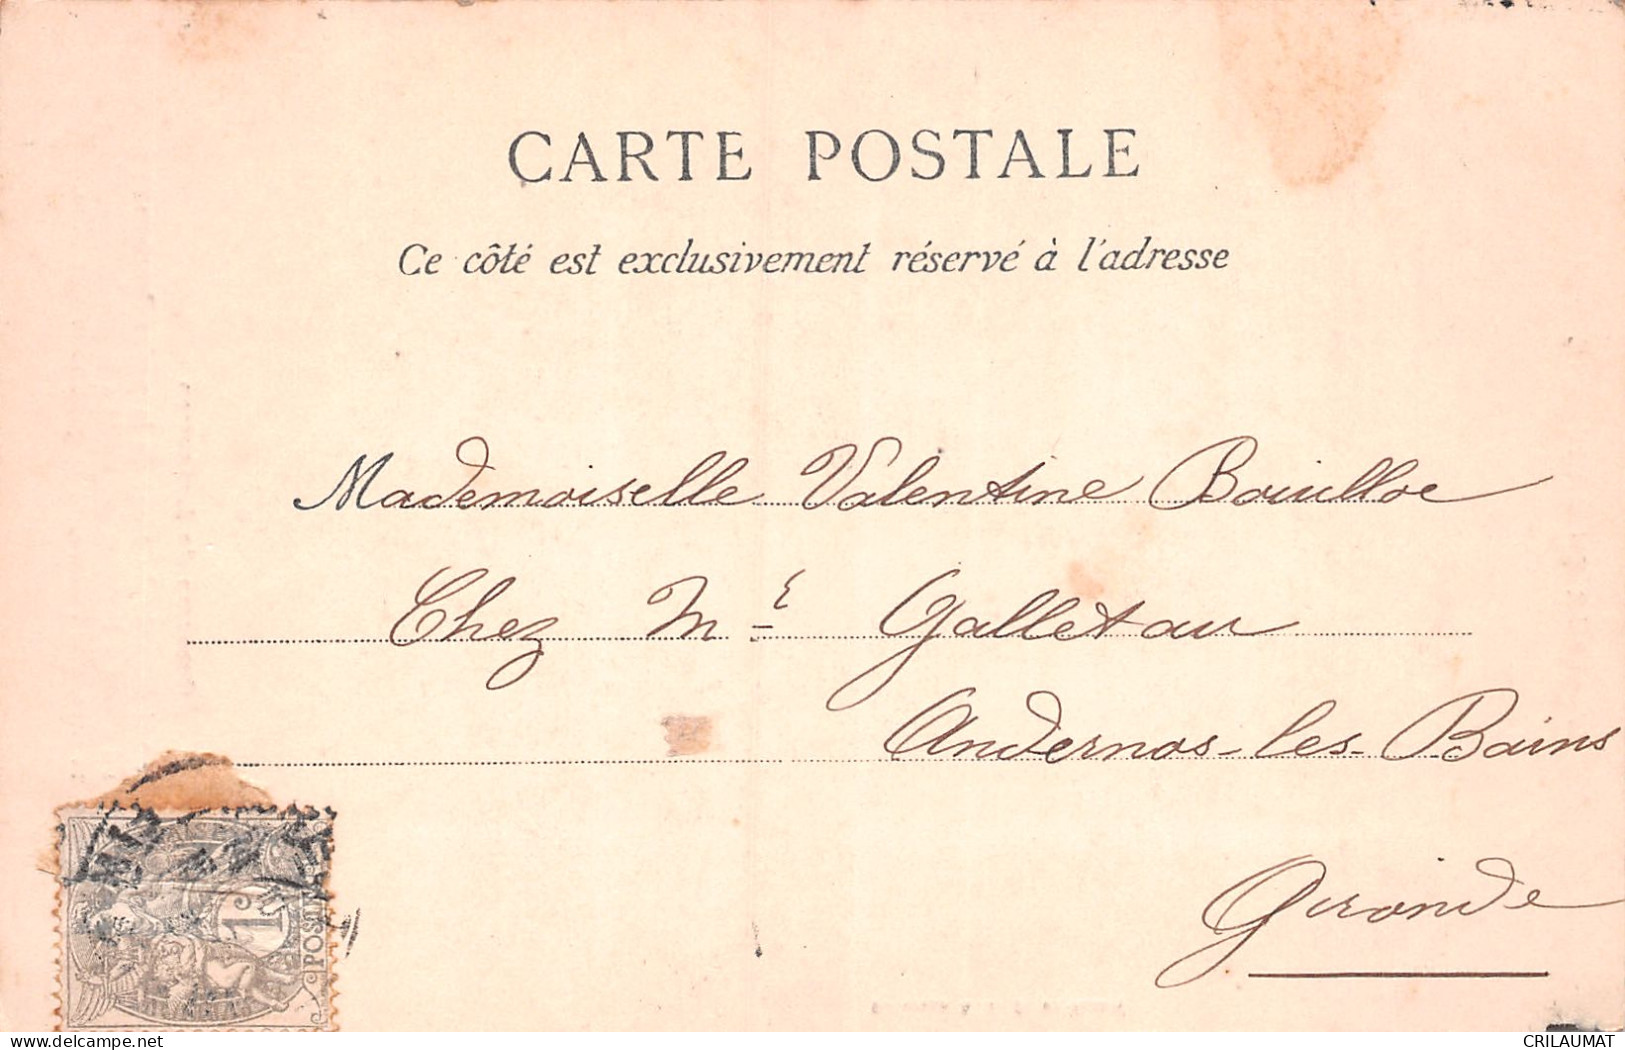 CARTE POSTALE
Ce côté est exclusivement réservé à l'adresse
Mademoiselle Valentine
Chez Mr Galletau
Andernos-les-Bains
Gironde
1c
POSTES
CRILAUMAT